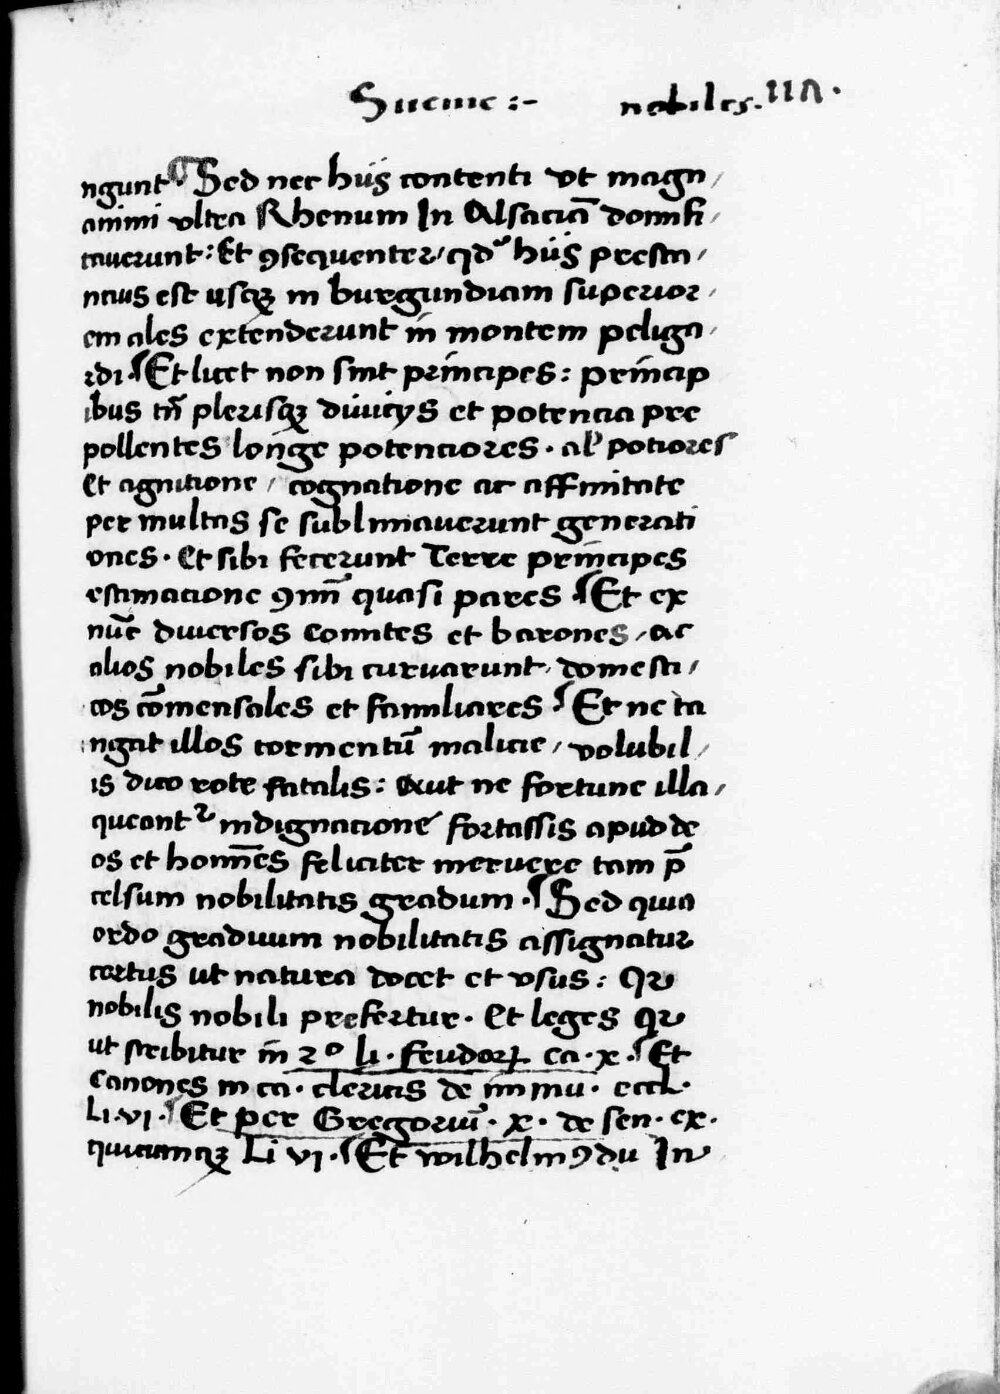 Sueuie :- nobiles. 117.
ngunt ¶ Sed nec hiis contenti vt magn/
animi vltra Rhenum In Alsaciā domifi/
cauerunt: Et ꝯsequenter/ qd' hiis presta/
ncius est usqꝫ in burgundiam superior/
em ales extenderunt in montem peliga/
rdi. ¶ Et licet non sint principes: princip
ibus tn̄ plerisqꝫ diuicijs et potencia pre
pollentes longe potenciores. al' pociores
et agnitione / cognatione ac affinitate
per multas se sublimauerunt generati
ones. Et sibi fecerunt Terre principes
estimacione ꝯmn̄i quasi pares ¶ Et ex
nūc diuersos Comites et barones / ac
alios nobiles sibi curuarunt. domesti/
cos cōmensales et familiares ¶ Et ne ta
ngat illos tormentū malicie / volubil/
is dico rote fatalis: Aut ne fortune illa/
queant' indignacione fortassis apud de
os et hom̄es feliciter meruere tam p̄
celsum nobilitatis gradum. ¶ Sed quia
ordo graduum nobilitatis assignatur
certus ut natura docet et vsus: Qr
nobilis nobili prefertur. Et leges Qr
ut scribitur in 2º li. feudorꝝ ca. x. ¶ Et
Canones in ca. clericis de immu. eccl.
Li. vi. ¶ Et per Gregoriū. x. de sen. ex.
quicumqꝫ Li vi. ¶ Et wilhelm ꝯdu In